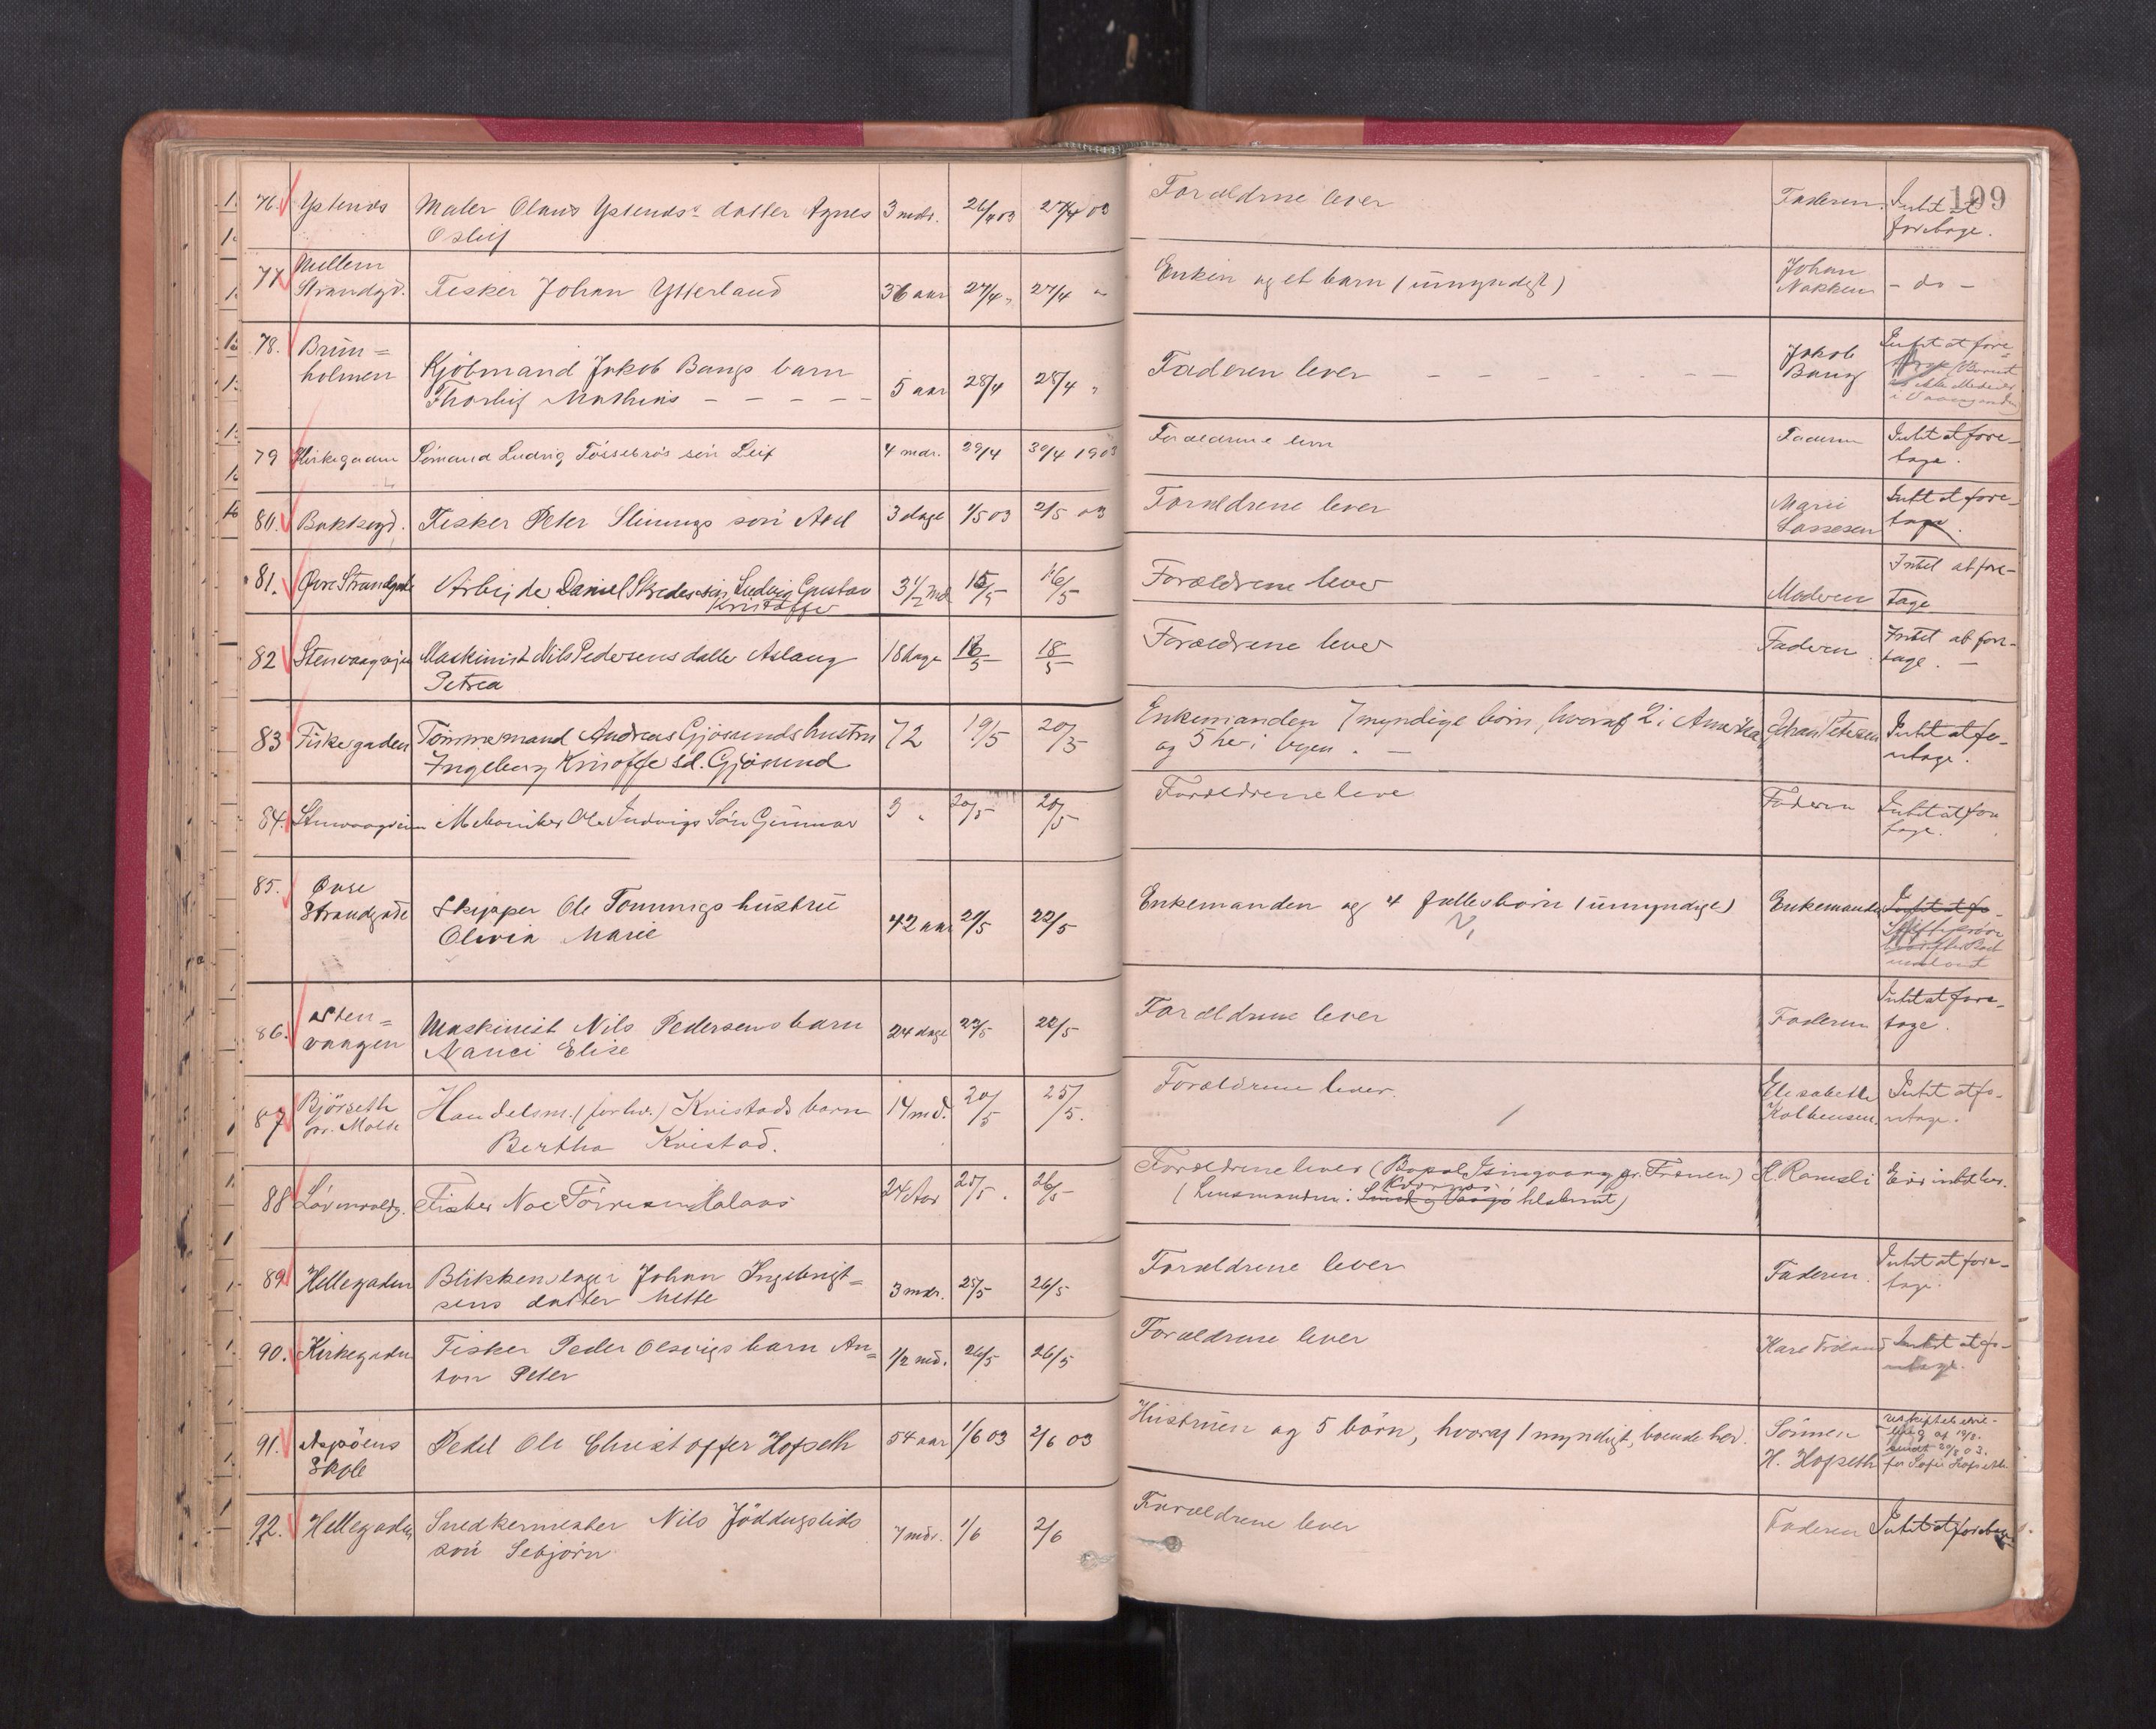 109
76. Ystends Maler Olaus Ystends datter Agnes 3 mdr. 26/4 03 27/4 03 Forældrene lever Faderen. Intet at
Oslig foretage.
77 Mellem
Strandgd. Fisker Johan Ytterland 36 aar 27/4 " 27/4 " Enken og et barn (umyndigt) Johan
Nakken - do -
78. Brun=
holmen Kjöbmand Jakob Bangs barn
Thorleif Mathias - - - - - 5 aar 28/4 28/4 " Faderen lever - - - - - - - Jakob
Bang Intet at fore=
79 Kirkegaden Sömand Ludvig Fossebrös sön Leif 4 mdr. 29/4 30/4 1903 Forældrene lever Faderen Intet at fore-
tage.
80. Bakkegd. Fisker Peter Slinnings sön Axel 3 dage 1/5 03 2/5 03 Forældrene lever Marie
Lassesen Intet at fore-
tage.
81. Øvre Strandgade Arbejder Daniel Skredes sön Ludvig Gustav
Kristoffer 3 1/2 md 15/5 16/5 Forældrene lever Moderen Intet at fore-
tage
82 Stenvaagveien Maskinist Nils Pedersens datter Aslaug
Petrea 18 dage 18/5 18/5 Forældrene lever Faderen Intet at fore-
tage. -
83 Fiskergaden Tömmermand Andreas Gjøsunds hustru
Ingeborg Knoffe sd. Gjøsund 72 19/5 20/5 Enkemanden 7 myndige börn, hvoraf 2 i Amerika
og 5 her i byen. - Johan Petersen Intet at fo-
retage.
84. Stenvaagveien Mekaniker Ole Ludvigs Sön Gunnar 9 " 20/5 20/5 Forældrene leve Faderen Intet at fore
tage.
85. Øvre
Strandgade Skipper Ole Tommigs hustru
Olivia Marie 42 aar 21/5 22/5 Enkemanden og 4 fællesbörn (umyndige) Enkemanden Intet at fo-
86. Sten=
vaagen Maskinist Nils Pedersens barn
Nanci Elise 24 dage 22/5 22/5 Forældrene lever Faderen Intet at fore-
tage.
87 Björseth
pr. Molde Handelsm. (forhv.) Kvistads barn
Bertha Kvistad. 14 md. 20/5 25/5. Forældrene lever. Elisabeth
Kolbensen Intet at fo-
retage.
88 Lövenvoldg. Fisker Noe Törresen Malaas 24 Aar 25/5. 26/5 Forældrene lever (Bopæl Isingvaag pr. Frænen)
Kvernæs
(Lensmanden i tilskrevet) K. Ramsli Eier intet her.
89 Hellegaden Blikkenslager Johan Ingebrigt=
sens datter Mette 3 mdr. 25/5 26/5 Forældrene lever Faderen. Intet at fore-
tage.
90. Kirkegaden Fisker Peder Olsvigs barn An=
ton Peter 1/2 md. 26/5 26/5 Forældrene lever Kare Intet at fo-
retage.
91. Aspöens
Skole Pedel Ole Christoffer Hofseth 54 aar 1/6 03 2/6 03 Hustruen og 5 börn, hvoraf 1 myndigt, boende her. Sönnen
H. Hofseth
for Sofie Hofseth
92. Hellegaden Snedkermester Nils Jöddugslids
sön Sebjörn 7 mdr. 1/6 2/6 Forældrene lever Faderen Intet at foretage.